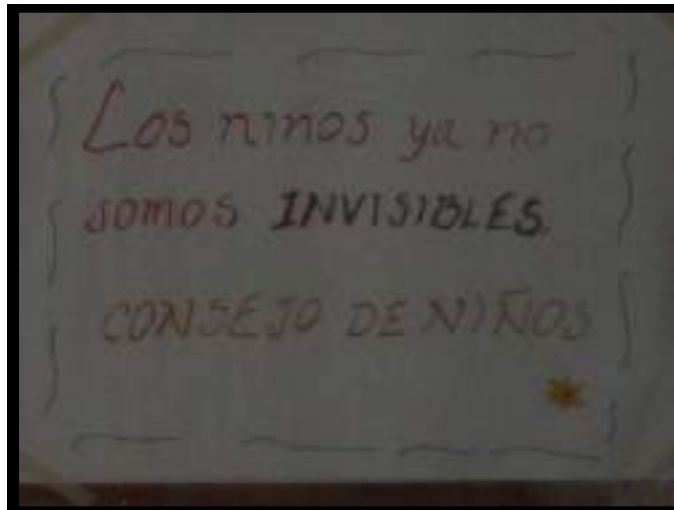 Los niños ya no
somos INVISIBLES.
CONSEJO DE NIÑOS